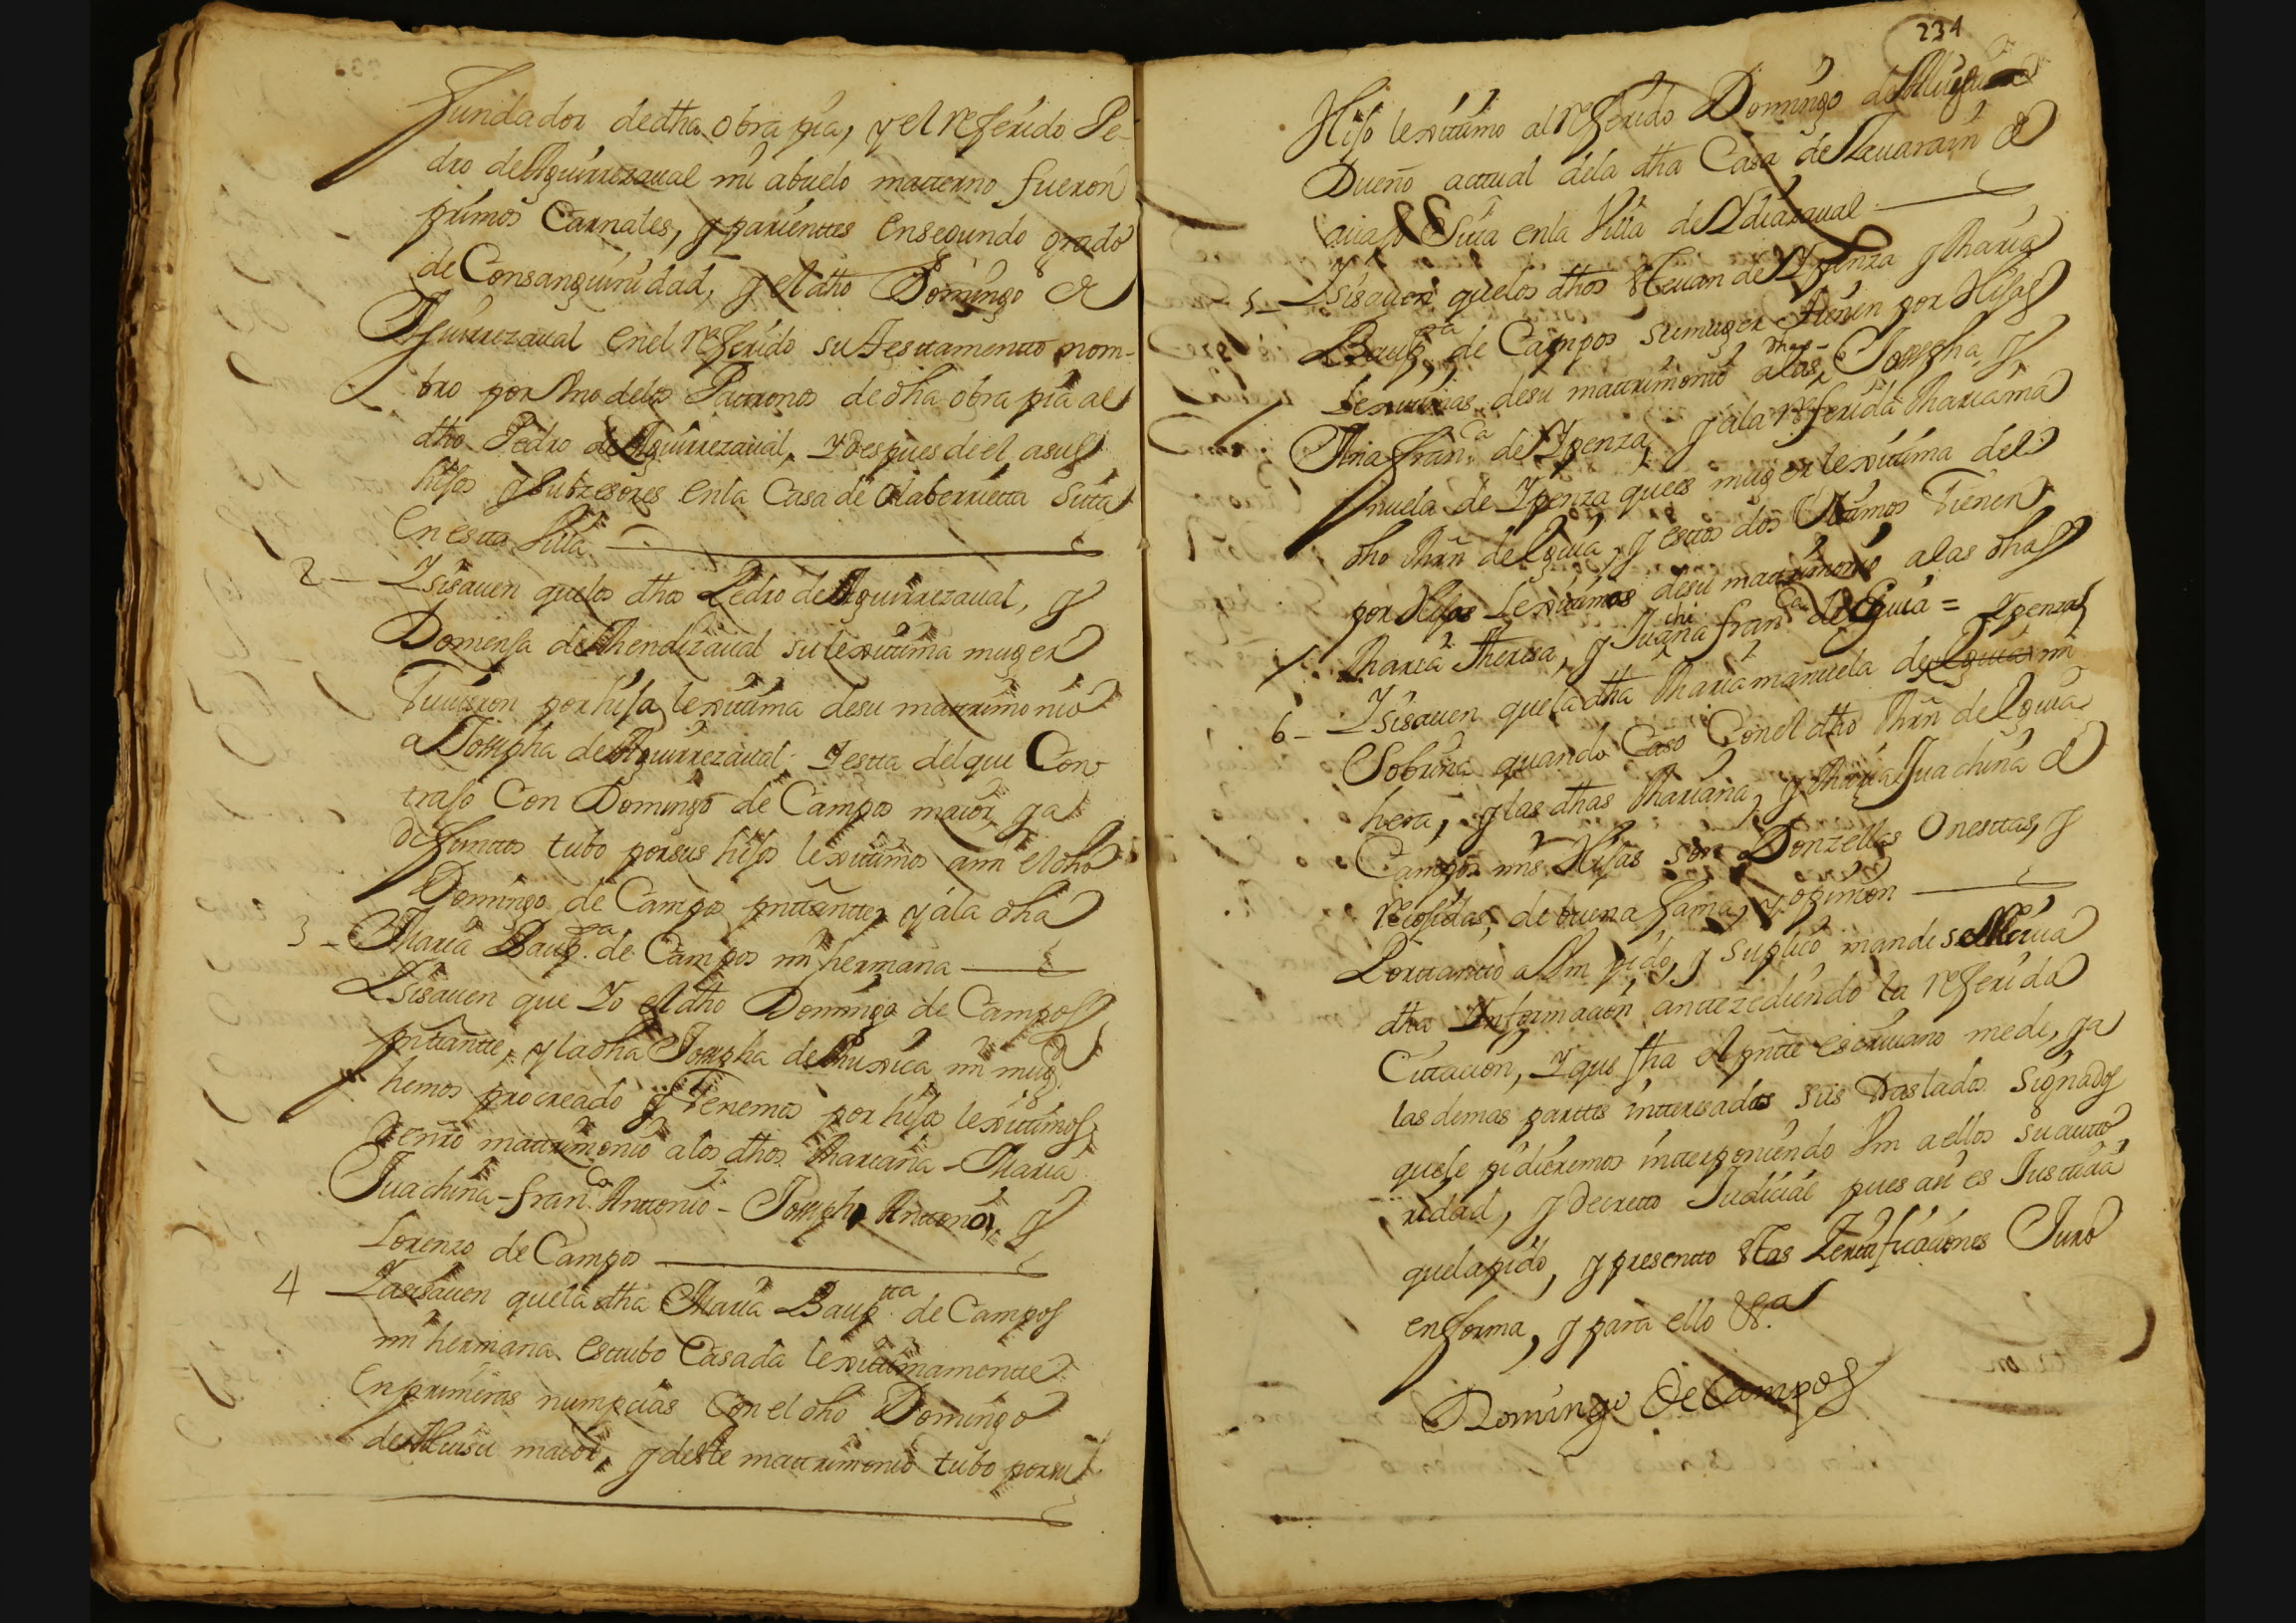 fundador dedha obra pia, y el referido Pe-
dro de Aguirrezaual mi abuelo matterno fueron
primos Carnales, y parienttes ensegundo grado
de Consanguinidad, y el dho Domingo de
Aguirrezaual enel referido su testtamentto nom-
bro por Uno delos Pattronos dedha obra pia al
dho Pedro de Aguirrezaual, y despues de el asus
hijos y subzesores enla Casa de olaberrietta Sitta
En estta Villa
2 - Ysisauen quelos dhos Pedro de Aguirrezaual, y
Domensa de Mendizaual su lexittima muger
Tuuieron por hija lexittima desu mattrimonio
a Josepha de Aguirrezaual. Y estta del que Con
trajo Con Domingo de Campos maior, ya
difuntto tubo por sus hijos lexittimos ami el dho
Domingo de Campos presentante, y ala dha
3 - Maria Baup.ta de Campos mi hermana
Ysisauen que Yo el dho Domingo de Campos
, y la dha Josepha de Muxica mi mug.r
hemos procreado y Tenemos por hijos lexittimos
de nro mattrimonio a los dhos Mariana - Maria
Juachina - fran.co Anttonio - Joseph Anttonio, y
Lorenzo de Campos
4 - Yasisauen quela dha Maria Baup.tta de Campos
mi hermana esttubo Casada lexittimamente
en primeras numpcias Con el dho Domingo
de maior, y deste mattrimonio tubo por su
234
Hijo lexittimo al referido Domingo de
Dueño acttual dela dha Casa de de
auajo Sitta enla Villa de Ydiazaual
5 - Ysisauen quelos dhos Steuan de Ypenza y Maria
Baup.ta de Campos sumuger tienen por Hijas
lexittimas desu mattrimonio alas dhas Josepha y
Ana fran.ca de Ypenza, y ala referida Maria ma
nuela de Ypenza quees muger lexittima del
dho Mrn de Eguia, y esttos dos Ulttimos Tienen
por Hijas Lexittimas desu mattrimonio alas dhas
Maria Theresa, y Juachina fran.ca de Eguia = Ypenza
6 - Ysisauen quela dha Maria manuela de Eguia mi
Sobrina quando Caso Conel dho Mrn de Eguia
hera, y las dhas Mariana, y Maria Juachina de
Campos mis Hijas son Donzellas Onesttas, y
recojidas, de buena fama, y opinion
Porttantto a Vm pido, y suplico mande se reciua
dha Ynformacion anttezediendo la referida
Cittacion, Y que fha el pntte escriuano me de, ya
las demas parttes intteresadas sus traslados signados
quele pidieremos intterponiendo Vm a ellos su autto
ridad, y decretto Judicial pues asi es Justicia
que la pido, y presentto esttas Zerttificaciones Juro
en forma, y para ello &.a
Domingo de Campos